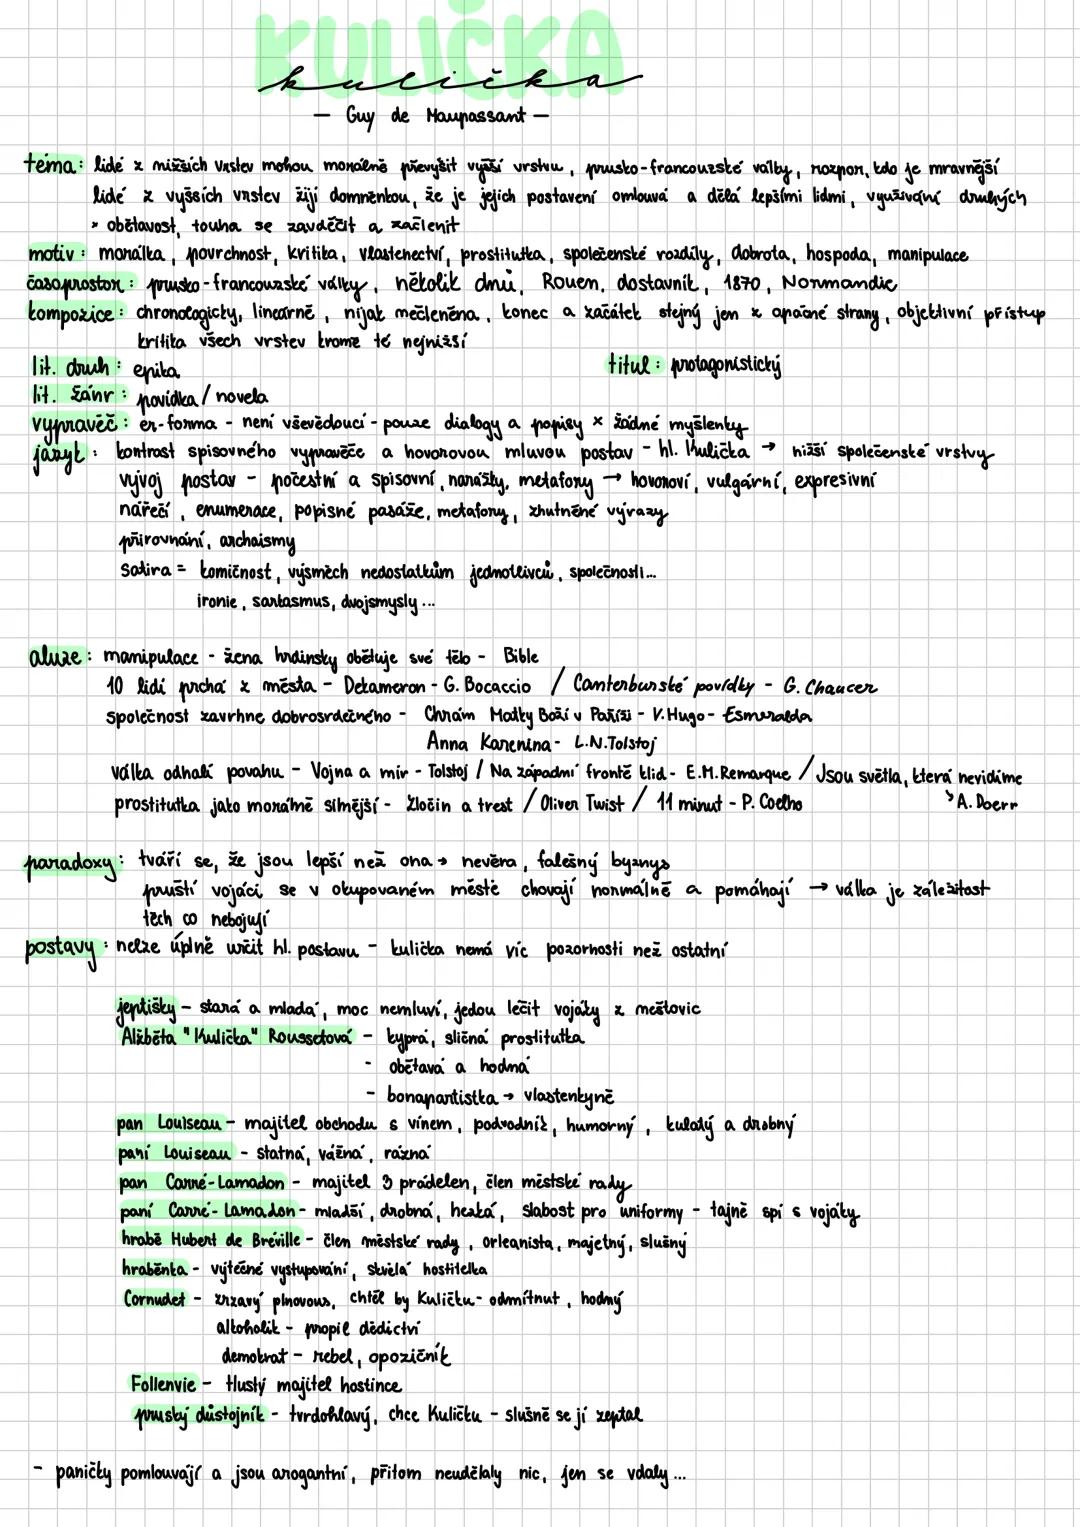 KULIČKA
kulička
— Guy de Maupassant —
téma: lidé z nižších vrstev mohou morálně převýšit vyšší vrstvu, prusko-francouzské války, rozpor, kdo je mravnější
lidé z vyšších vrstev žijí domněnkou, že je jejich postavení omlouvá a dělá lepšími lidmi, využívání druhých
× obětavost, touha se zavděčit a začlenit
motiv: morálka, povrchnost, kritika, vlastenectví, prostitutka, společenské rozdíly, dobrota, hospoda, manipulace
časoprostor: prusko-francouzské války, několik dnů, Rouen, dostavník, 1870, Normandie
kompozice: chronologicky, lineárně, nijak nečleněna, konec a začátek stejný jen z opačné strany, objektivní přístup
kritika všech vrstev krome té nejnižší
lit. druh: epika
titul: protagonistický
lit. žánr: povídka / novela
vypravěč: er-forma - není vševědoucí - pouze dialogy a popisy × žádné myšlenky
jazyk: kontrast spisovného vypravěče a hovorovou mluvou postav - hl. Kulička → nižší společenské vrstvy
vývoj postav - počestní a spisovní, narážky, metafory → hovoroví, vulgární, expresivní
nářečí, enumerace, popisné pasáže, metafory, zhutněné výrazy
přirovnání, archaismy
satira = komičnost, výsměch nedostatkům jednotlivců, společnosti...
ironie, sarkasmus, dvojsmysly...
aluze: manipulace - žena hrdinsky obětuje své tělo - Bible
10 lidí prchá z města - Dekameron - G. Bocaccio / Canterburské povídky - G. Chaucer
společnost zavrhne dobrosrdečného - Chrám Matky Boží v Paříži - V. Hugo - Esmeralda
Anna Karenina - L.N.Tolstoj
válka odhalí povahu - Vojna a mír - Tolstoj / Na západní frontě klid - E.M.Remarque / Jsou světla, která nevidíme
prostitutka jako morálně silnější - Zločin a trest / Oliver Twist / 11 minut - P. Coelho
↳ A. Doerr
paradoxy: tváří se, že jsou lepší než ona → nevěra, falešný byznys
pruští vojáci se v okupovaném městě chovají normálně a pomáhají → válka je záležitost
těch co nebojují
postavy: nelze úplně určit hl. postavu - kulička nemá víc pozornosti než ostatní
jeptišky - stará a mladá, moc nemluví, jedou léčit vojáky z neštovic
Alžběta "Kulička" Roussetová - kyprá, sličná prostitutka
- obětavá a hodná
- bonapartistka → vlastenkyně
pan Louiseau - majitel obchodu s vínem, podvodník, humorný, kulatý a drobný
paní Louiseau - statná, vážná, rázná
pan Carré-Lamadon - majitel 3 prádelen, člen městské rady
paní Carré-Lamadon - mladší, drobná, hezká, slabost pro uniformy - tajně spí s vojáky
hrabě Hubert de Bréville - člen městské rady, orleanista, majetný, slušný
hraběnka - výtečné vystupování, skvělá hostitelka
Cornudet - zrzavý plnovous, chtěl by Kuličku - odmítnut, hodný
alkoholik - propil dědictví
demokrat - rebel, opozičník
Follenvie - tlustý majitel hostince
pruský důstojník - tvrdohlavý, chce Kuličku - slušně se jí zeptal
- paničky pomlouvají a jsou arogantní, přitom neudělaly nic, jen se vdaly...